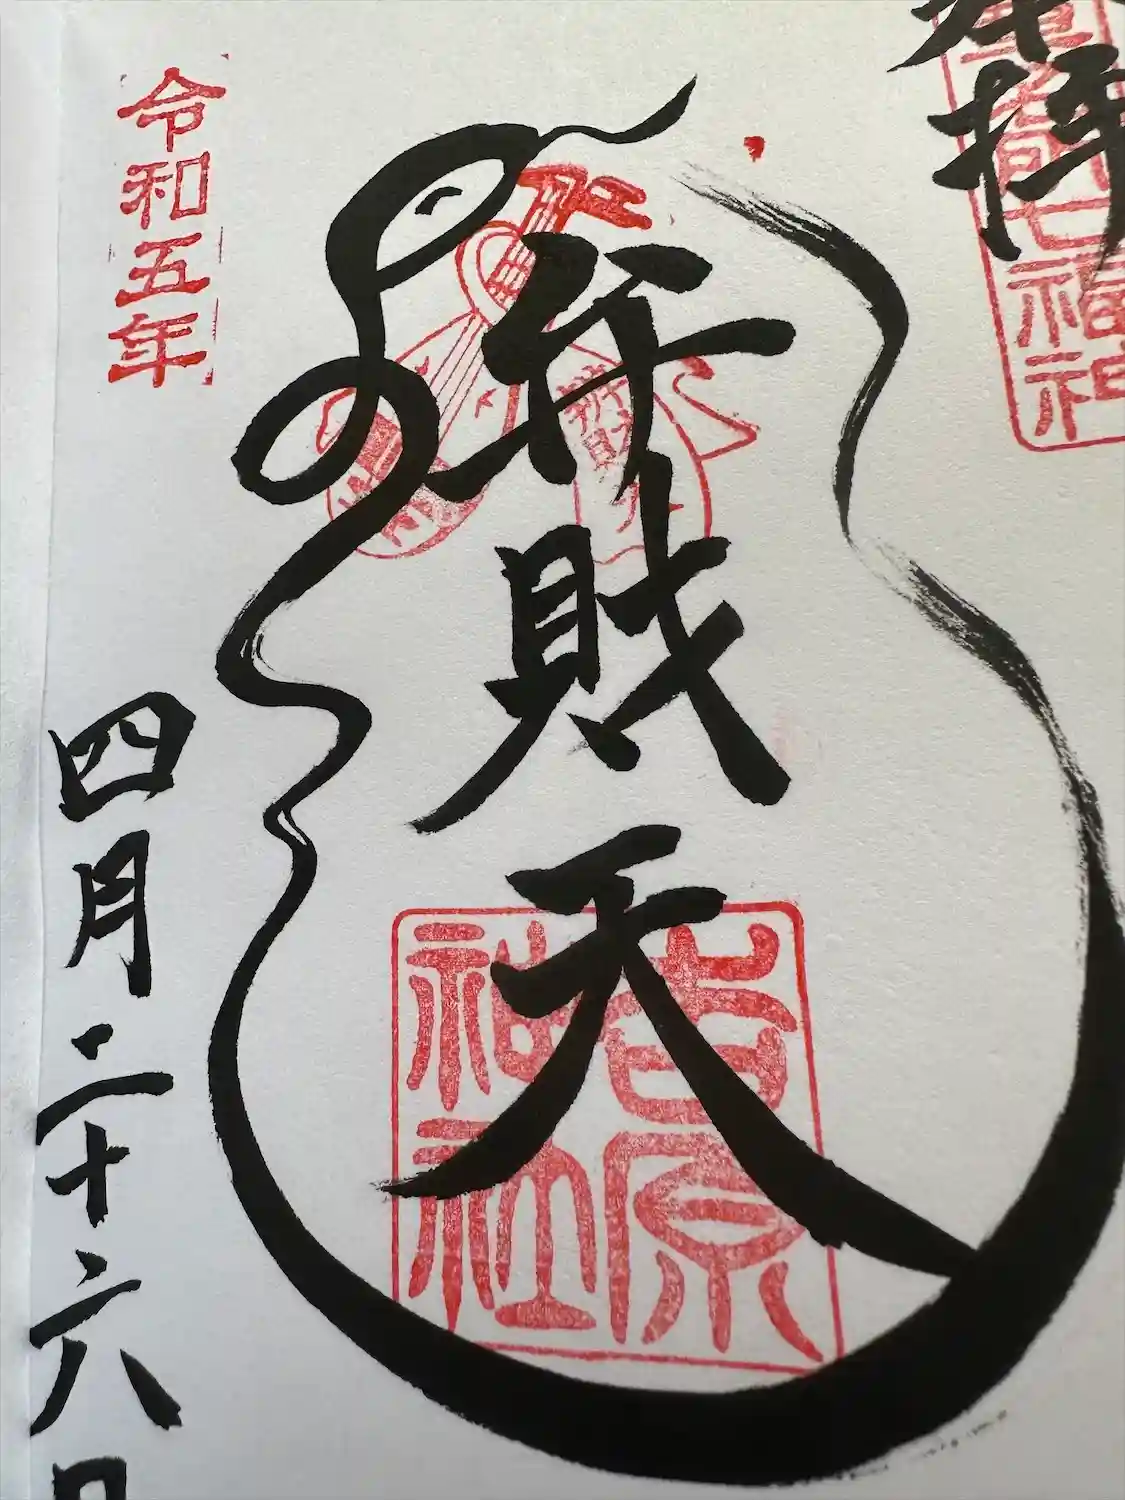 奉拝
七福神
弁財天
吉原
神社
令和五年
四月二十六日